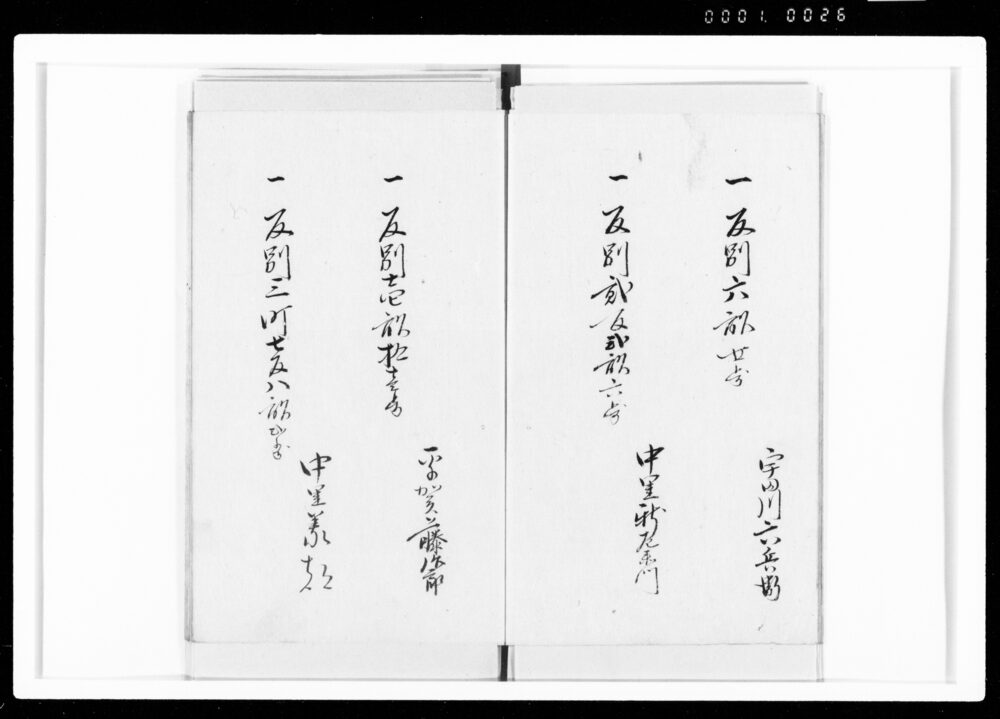 0001.0026
一反別六畝廿歩
宇田川六兵衛
一反別貳反貳畝六歩
中里新左衛門
一反別壱畝拾壱歩
平賀藤次郎
一反別三町七反八畝
中里